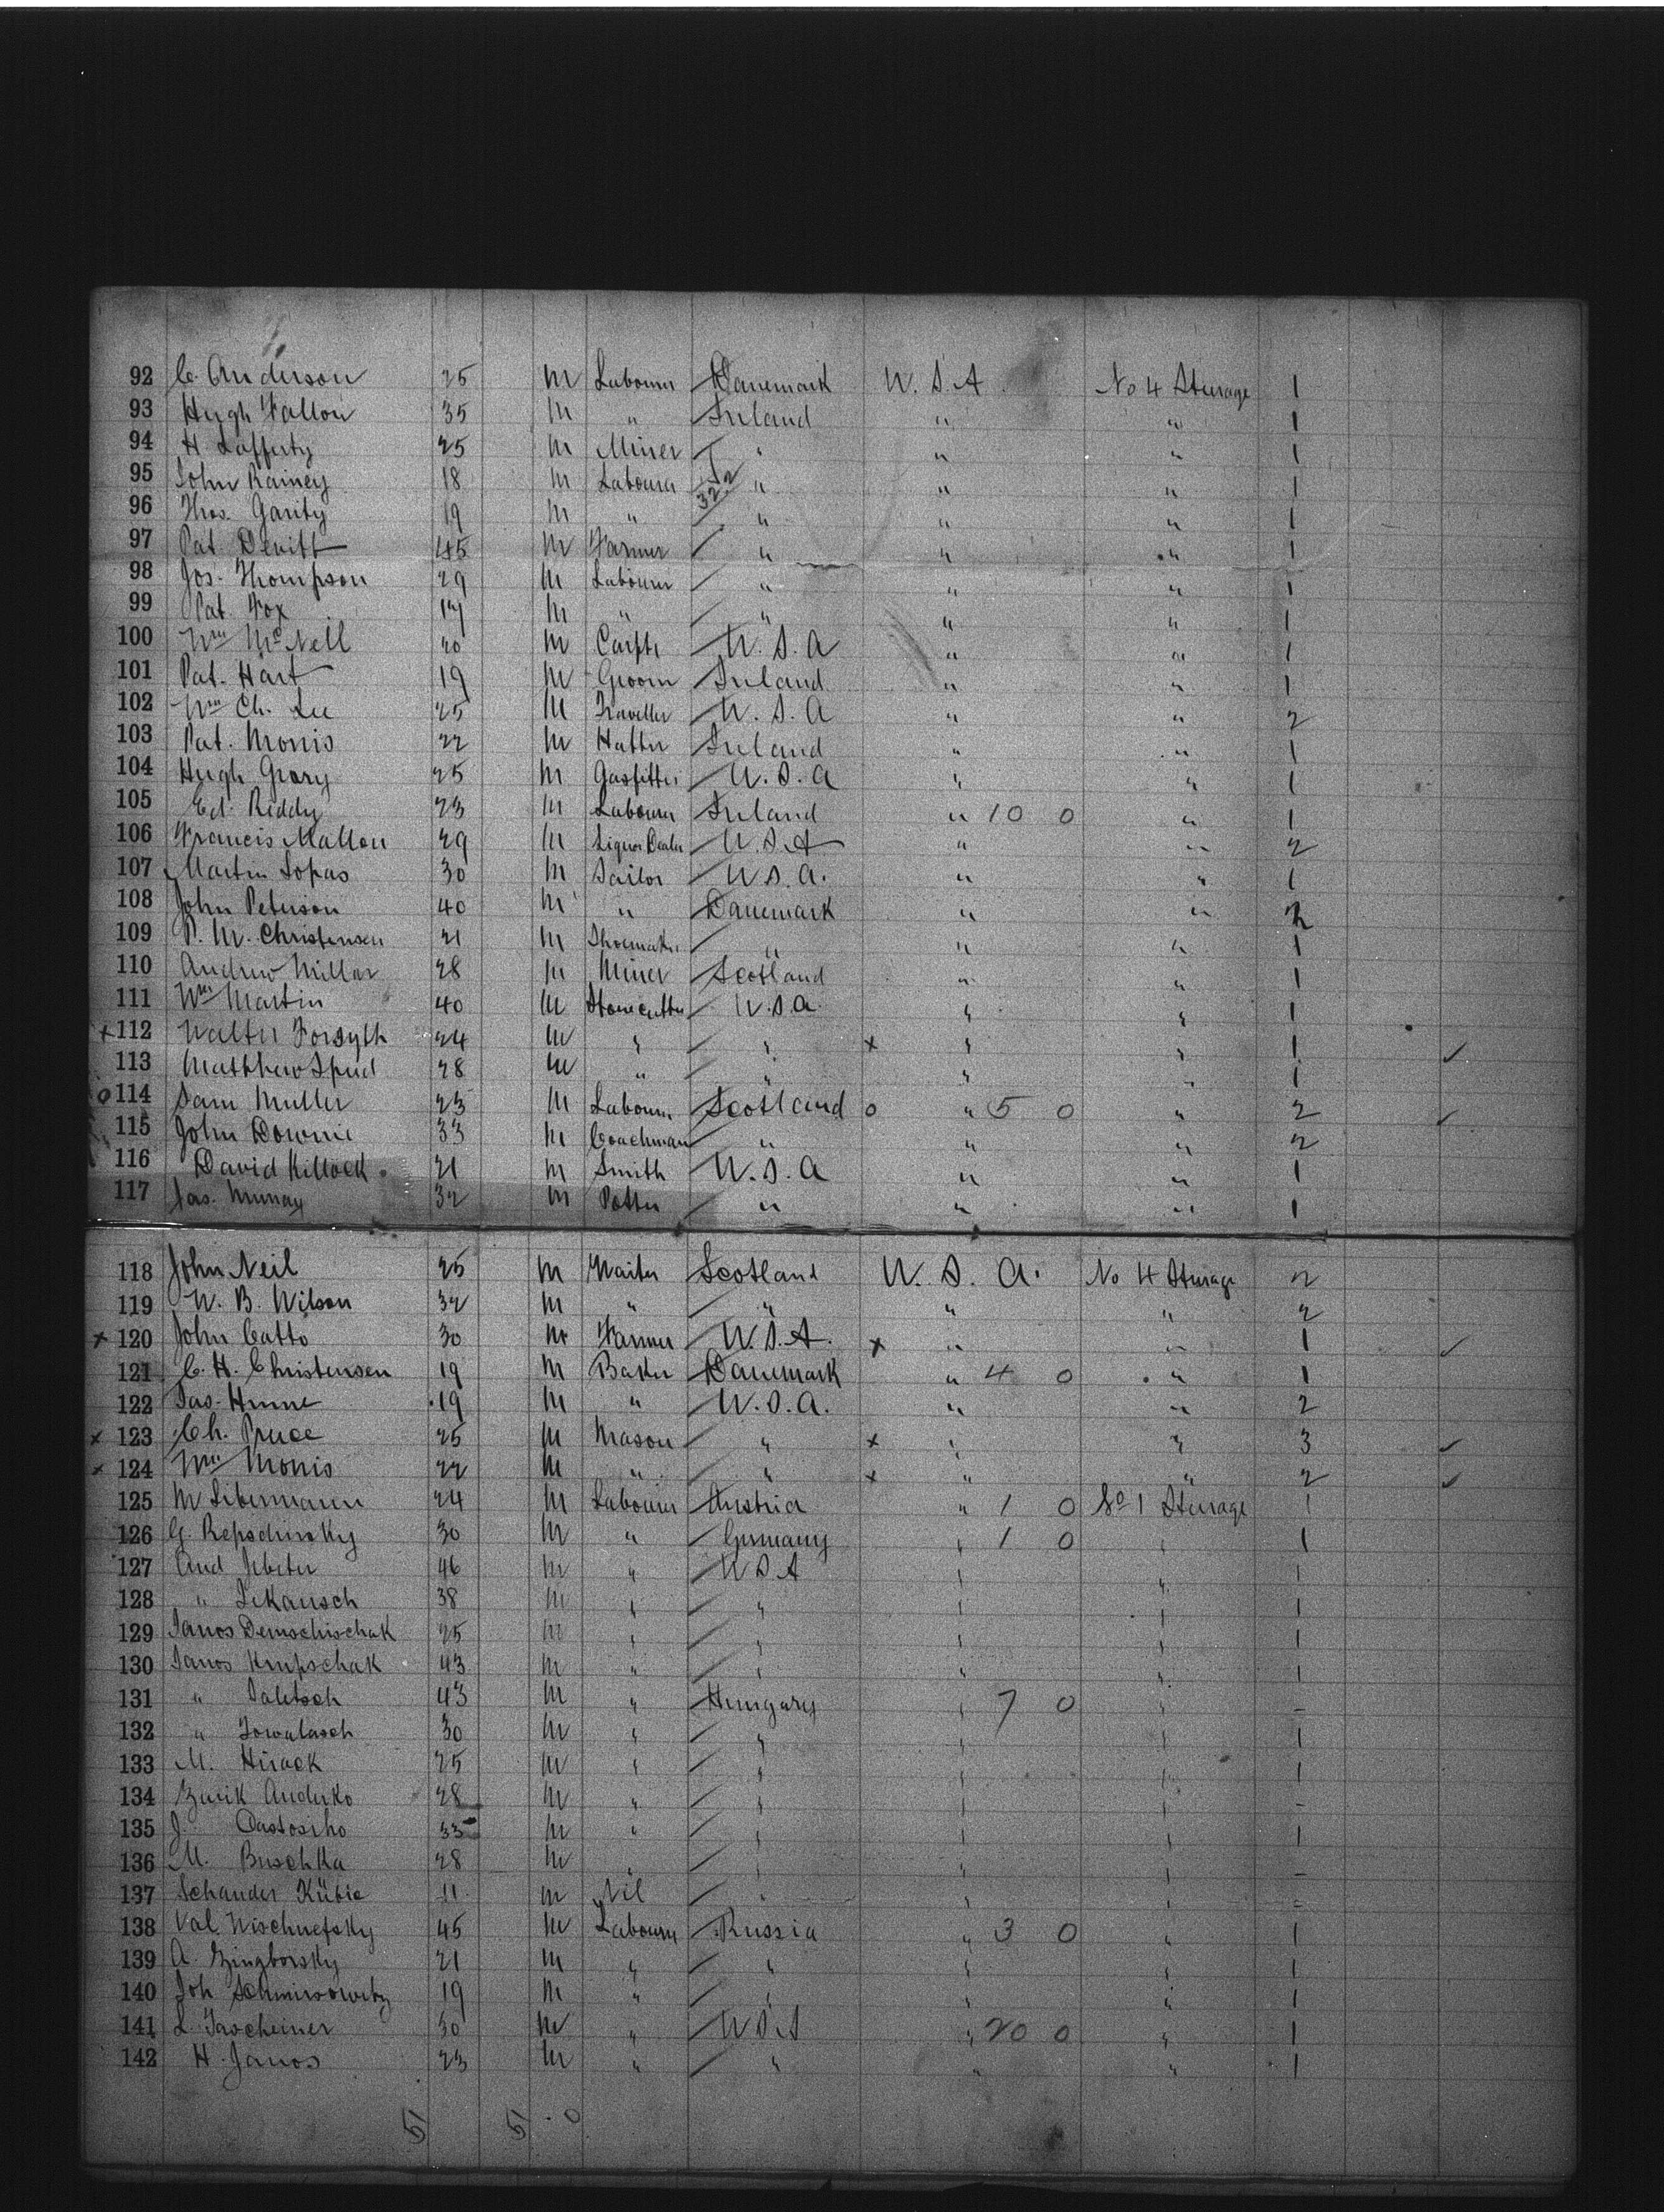 92 C. Anderson 25 M Labourer Danemark U.S.A. No 4 Sturage 1
93 Hugh Fallon 35 M " Ireland " " 1
94 H Lafferty 25 M Miner " " " 1
95 John Rainey 18 M Labourer 322 " " " 1
96 Thos. Garity 19 M " " " " 1
97 Pat Devitt 45 M Farmer " " " 1
98 Jos. Thompson 29 M Labourer " " " 1
99 Pat. Fox 17 M " " " " 1
100 Wm McNeil 20 M Carptr U.S.A " " 1
101 Pat. Hart 19 M Groom Ireland " " 1
102 Wm Ch. Lee 25 M Traveller U.S.A " " 2
103 Pat. Morris 22 M Hatter Ireland " " 1
104 Hugh Grary 25 M Gasfitter U.S.A " " 1
105 Ed. Reddy 23 M Labourer Ireland " 10 0 " 1
106 Francis Mallon 29 M Liquor Dealer U.S.A " " 2
107 Martin Lopas 30 M Sailor U.S.A. " " 1
108 John Peterson 40 M " Danemark " " 2
109 P. M. Christensen 21 M Shoemaker " " " 1
110 Andrew Millar 28 M Miner Scotland " " 1
111 Wm Martin 40 M Stonecutter U.S.A. " " 1
x 112 Walter Forsyth 24 M " " x " " 1 ✓
113 Matthew Spud 28 M " " " " 1
o 114 Sam Muller 23 M Labourer Scotland o " 5 0 " 2 ✓
115 John Downie 33 M Coachman " " " 2
116 David Killock 21 M Smith U.S.A " " 1
117 Jas. Murray 32 M Potter " " " 1
118 John Neil 25 M Waiter Scotland U.S.A. No 4 Sturage 2
119 W. B. Wilson 32 M " " " " 2
x 120 John Catto 30 M Farmer U.S.A. x " " 1 ✓
121 C. H. Christensen 19 M Baker Danemark " 4 0 " 1
122 Jas. Hume 19 M " U.S.A. " " 2
x 123 Ch. Pruce 25 M Mason " x " " 3 ✓
x 124 Wm Morris 22 M " " x " " 2 ✓
125 M Libermann 24 M Labourer Austria " 1 0 No 1 Sturage 1
126 G. Repschinsky 30 M " Germany " 1 0 " 1
127 And 46 M " U S A " " 1
128 " Lekausch 38 M " " " " 1
129 Janos Demschischak 25 M " " " " 1
130 Janos Krupschak 43 M " " " " 1
131 " Saletsch 43 M " Hungary " 7 0 " -
132 " Towalasch 30 M " " " " 1
133 M. Hirack 25 M " " " " 1
134 Zurik Anduko 28 M " " " " -
135 J. 33 M " " " " 1
136 M. Buschka 28 M " " " " -
137 Schander Kübic 11 M Nil " " " -
138 Val Wischnefsky 45 M Labourer Russia " 3 0 " 1
139 A. Zingborsky 21 M " " " " 1
140 Joh 19 M " " " " 1
141 L. Tascheiner 30 M " U S A " 20 0 " 1
142 H. Janos 23 M " " " " 1
51 51 . 0